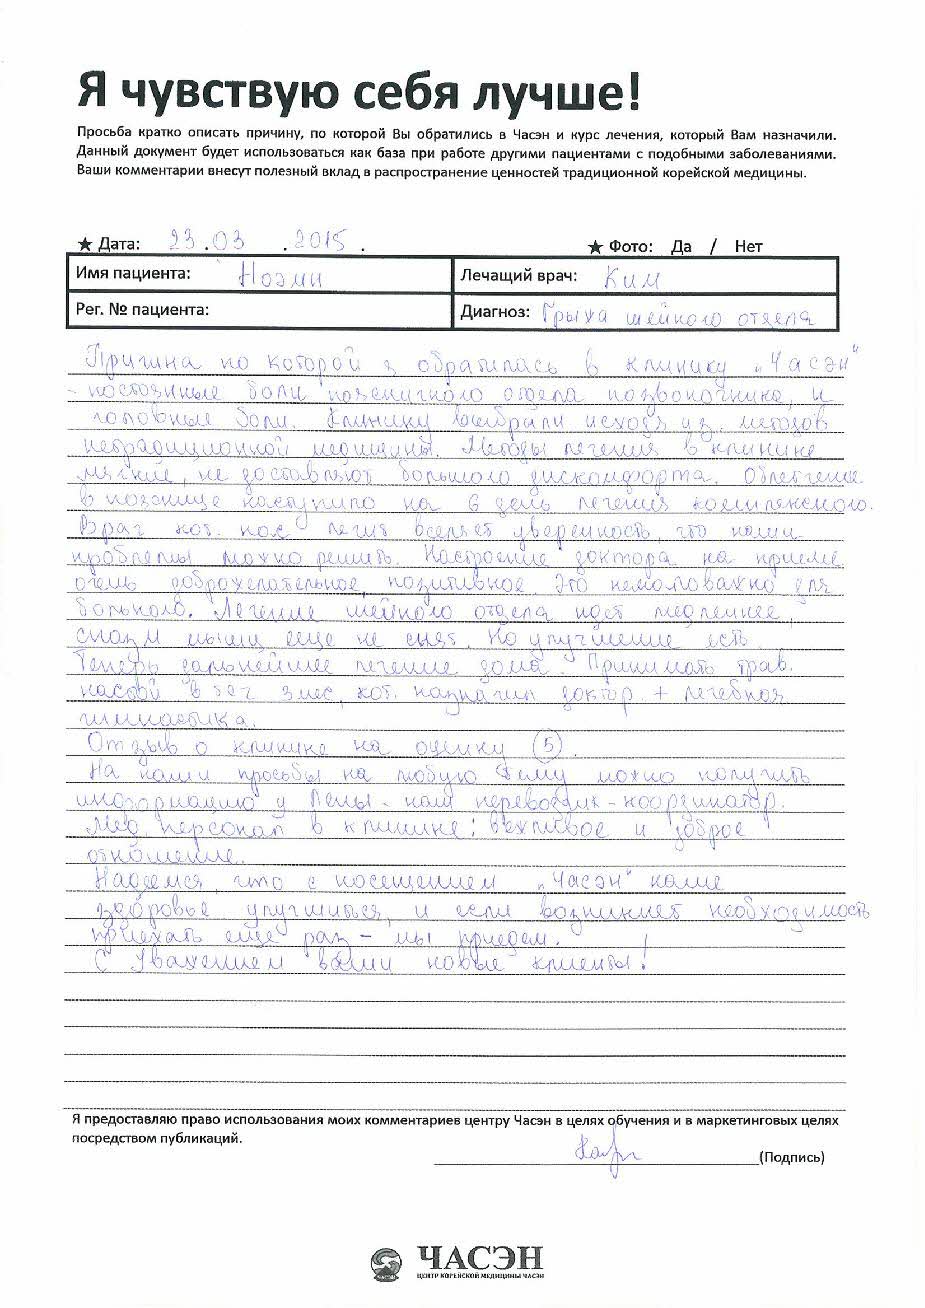 Я чувствую себя лучше!
Просьба кратко описать причину, по которой Вы обратились в Часэн и курс лечения, который Вам назначили.
Данный документ будет использоваться как база при работе другими пациентами с подобными заболеваниями.
Ваши комментарии внесут полезный вклад в распространение ценностей традиционной корейской медицины.
★ Дата: 23.03.2015. ★ Фото: Да / Нет
Имя пациента: Ноэми Лечащий врач: Ким
Рег. № пациента: Диагноз: Грыжа шейного отдела
Причина по которой я обратилась в клинику „Часэн"
- постоянные боли поясничного отдела позвоночника, и
головные боли. Клинику выбрали исходя из методов
нетрадиционной медицины. Методы лечения в клинике
мягкие, не доставляют большого дискомфорта. Облегчение
в пояснице наступило на 6 день лечения комплексного.
Врач кот. нас лечит вселяет уверенность, что наши
проблемы можно решить. Настроение доктора на приеме
очень доброжелательное, позитивное. Это немаловажно для
больного. Лечение шейного отдела идет медленнее,
спазм мышц еще не снят. Но улучшение есть.
Теперь дальнейшее лечение дома. Принимать трав.
настой в теч 3 мес, кот. назначил доктор + лечебная
гимнастика.
Отзыв о клинике на оценку (5).
На наши просьбы на любую тему можно получить
информацию у Лены - наш переводчик-координатор.
Мед персонал в клинике: вежливое и доброе
отношение.
Надеемся, что с посещением „Часэн" наше
здоровье улучшиться, и если возникнет необходимость
приехать еще раз - мы приедем.
С Уважением ваши новые клиенты!
Я предоставляю право использования моих комментариев центру Часэн в целях обучения и в маркетинговых целях
посредством публикаций.
(Подпись)
ЧАСЭН
ЦЕНТР КОРЕЙСКОЙ МЕДИЦИНЫ ЧАСЭН